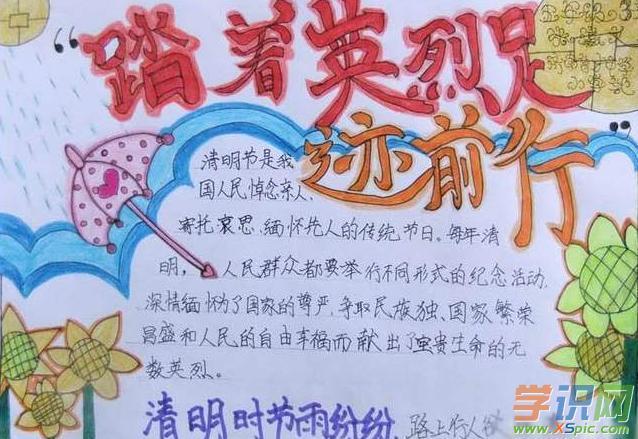 “踏着英烈足
迹前行
清明节是我
国人民悼念亲人、
寄托哀思、缅怀先人的传统节日。每年清
明，人民群众都要举行不同形式的纪念活动，
深情缅怀为了国家的尊严，争取民族独、国家繁荣
昌盛和人民的自由幸福而献出了宝贵生命的无
数英烈。
清明时节雨纷纷，路上行人
学识网
www.XSpic.com